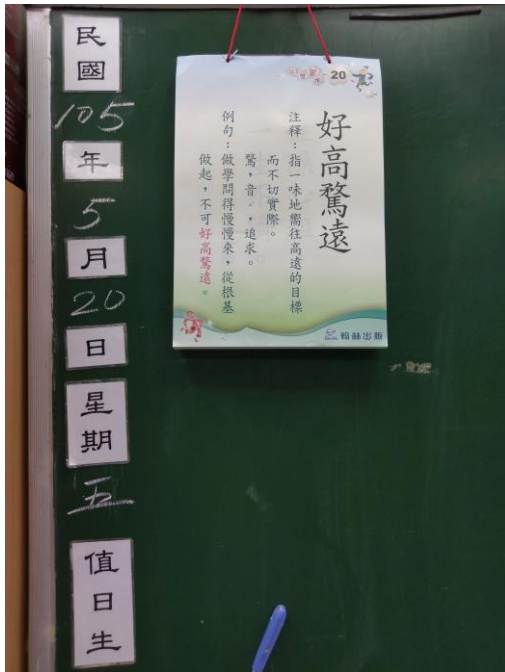 民國
105
年
5
月
20
日
星期
五
值日生
20
好高騖遠
注釋：指一味地嚮往高遠的目標
而不切實際。
騖，音ㄨˋ，追求。
例句：做學問得慢慢來，從根基
做起，不可好高騖遠。
翰林出版